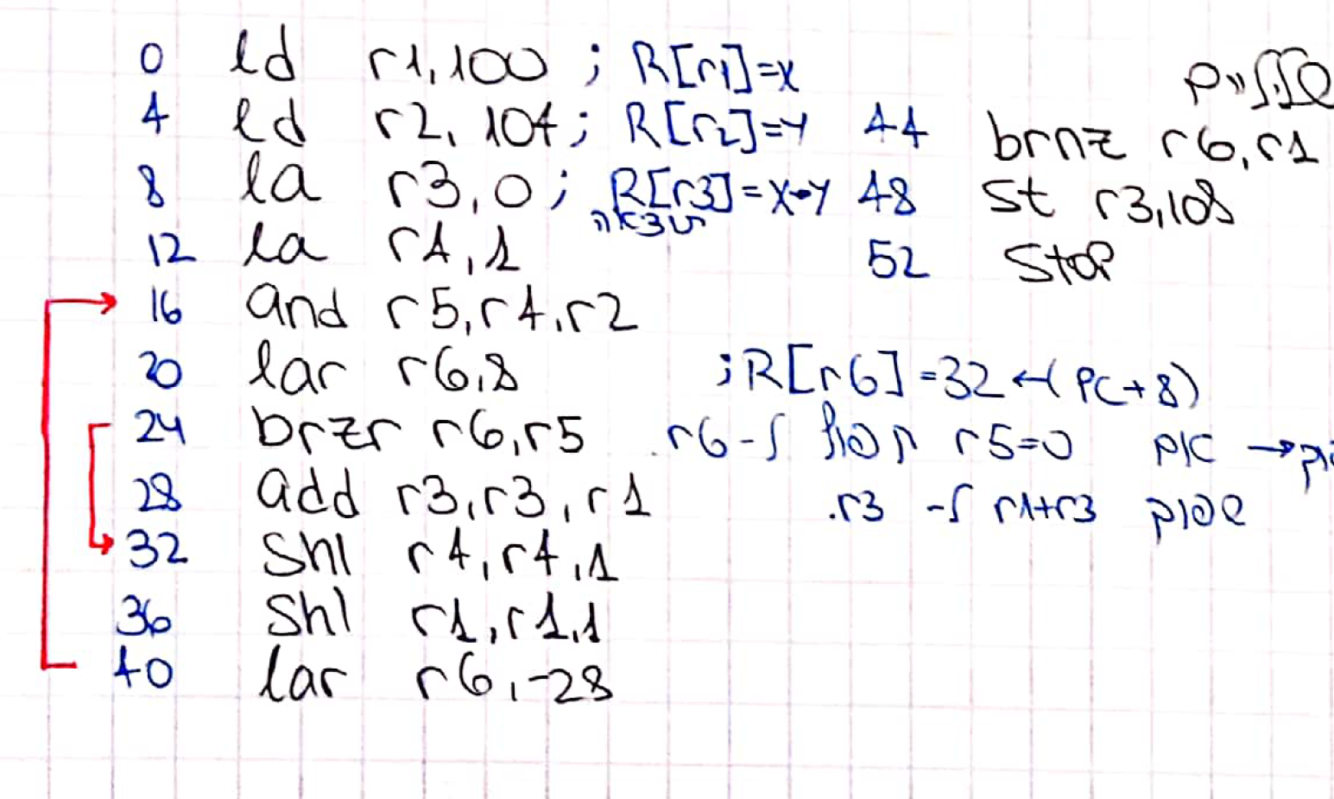 0 ld r1,100 ; R[r1]=x
4 ld r2, 104; R[r2]=y
8 la r3,0 ; R[r3]=x•y
תוצאה
12 la r4,1
16 and r5,r4,r2
20 lar r6,8 ;R[r6]=32 ←(PC+8)
24 brzr r6,r5 אם r5=0 קפוץ ל-r6.
28 add r3,r3,r1 r1+r3 ל- r3.
32 Shl r4,r4,1
36 Shl r1,r1,1
40 lar r6,-28
44 brnz r6,r1
48 St r3,108
52 Stop